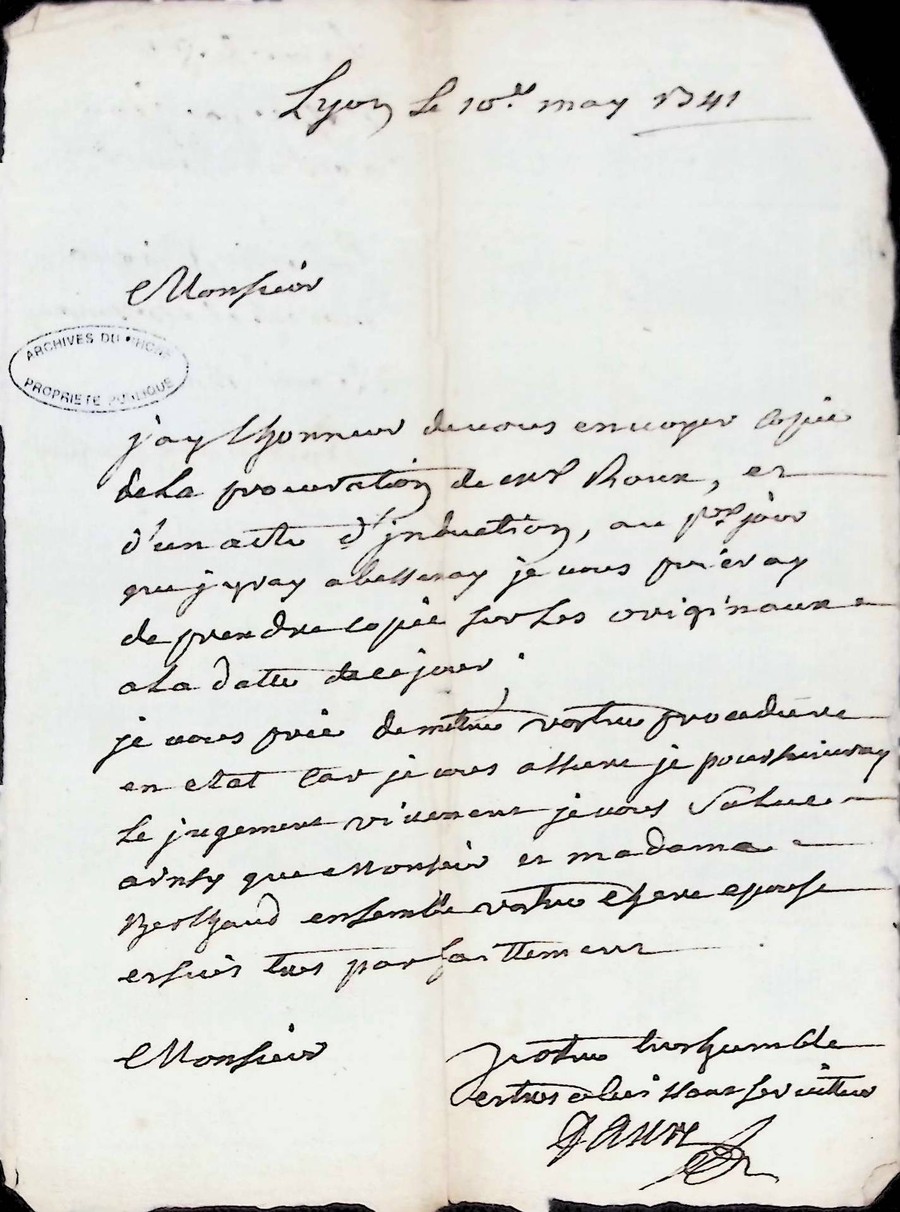 Lyon le 10.e may 1741
Monsieur
ARCHIVES DU RHONE
PROPRIETE PUBLIQUE
j'ay lhonneur devous envoyer copie
dela procuration de Mr Roux, et
d'un acte d'jnduction, au per jour
que jyray a bessenay je vous prieray
de prendre copie sur les originaux
ala datte dece jour.
je vous prie demettre vostre procedure
en etat car je vous assure je poursuivray
le jugement vivement je vous salue
ainsy que Monsieur et madame
Berthaud ensemble vostre chere epouse
et suis tres parfaittement
Monsieur
Vostre tres humble
et tres obeissant serviteur